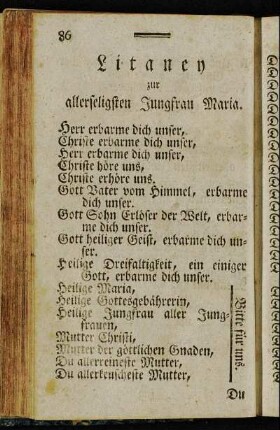 86
Litaney
zur
allerseligsten Jungfrau Maria.
Herr erbarme dich unser,
Christe erbarme dich unser,
Herr erbarme dich unser,
Christe höre uns,
Christe erhöre uns.
Gott Vater vom Himmel, erbarme
dich unser.
Gott Sohn Erlöser der Welt, erbar-
me dich unser.
Gott heiliger Geist, erbarme dich un-
ser.
Heilige Dreifaltigkeit, ein einiger
Gott, erbarme dich unser.
Heilige Maria,
Heilige Gottesgebährerin,
Heilige Jungfrau aller Jung-
frauen,
Mutter Christi,
Mutter der göttlichen Gnaden,
Du allerreineste Mutter,
Du allerkeuscheste Mutter,
Bitte für uns.
Du